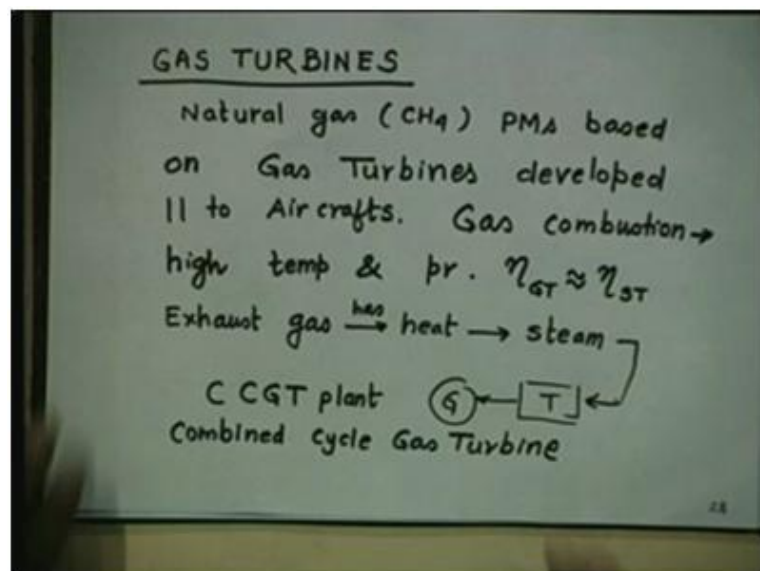 GAS TURBINES
Natural gas (CH4) PMs based
on Gas Turbines developed
|| to Air crafts. Gas combustion →
high temp & pr. ηGT ≈ ηST
Exhaust gas has → heat → steam
C CGT plant G ← T
Combined cycle Gas Turbine
28